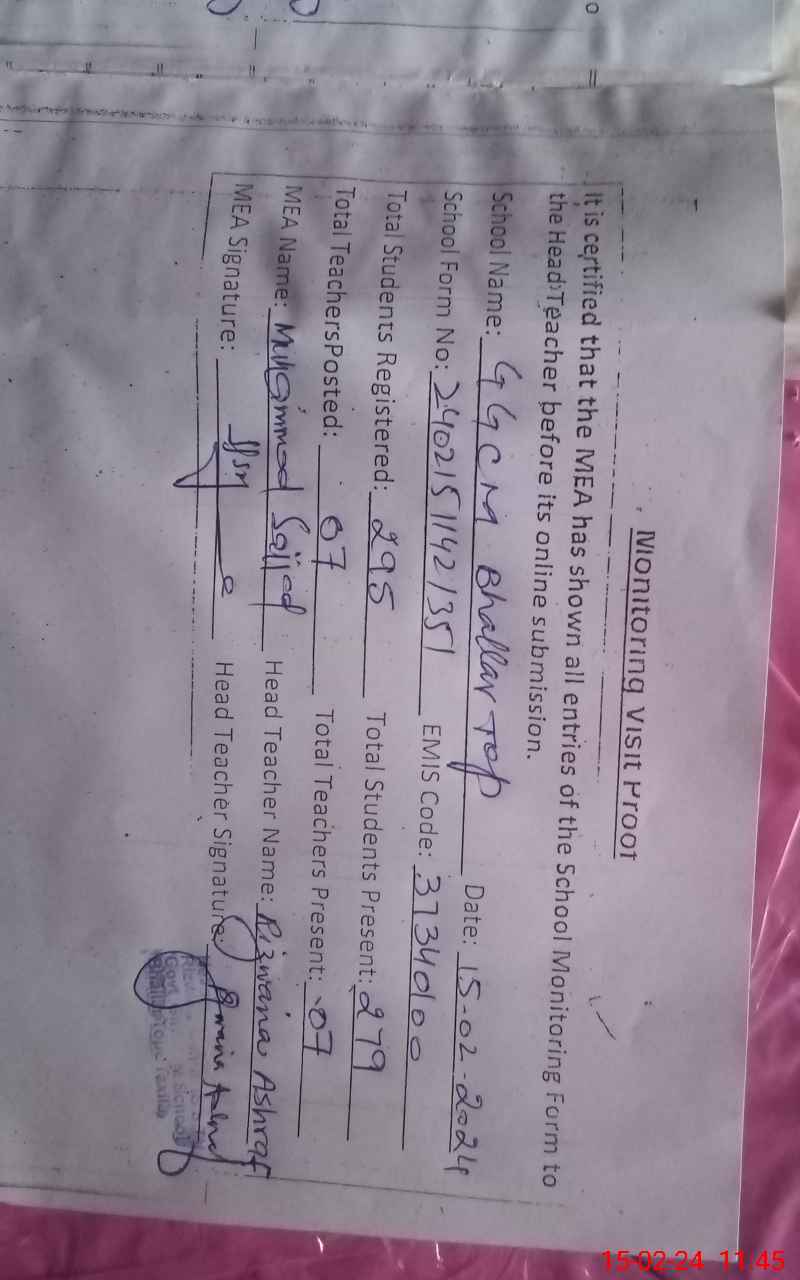 Monitoring Visit Proof
It is certified that the MEA has shown all entries of the School Monitoring Form to
the Head Teacher before its online submission.
School Name: GGCM Bhallar Top Date: 15-02-2024
School Form No: 24021511421351 EMIS Code: 37340100
Total Students Registered: 295 Total Students Present: 279
Total TeachersPosted: 07 Total Teachers Present: 07
MEA Name: Muhammad Sajjad Head Teacher Name: Rizwana Ashraf
MEA Signature: Head Teacher Signature:
15-02-24 11:45